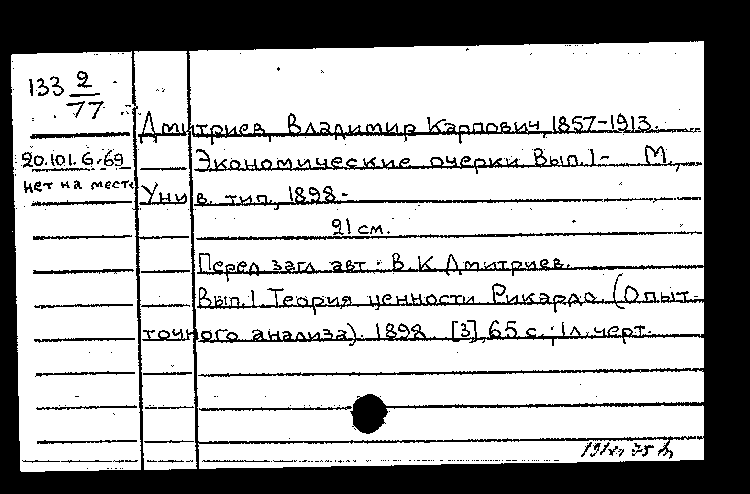 133 2/77
Дмитриев, Владимир Карпович, 1857-1913.
20.101.6.69
Экономические очерки Вып.1- М.,
нет на месте
Унив. тип., 1898-
21 см.
Перед загл. авт.: В.К Дмитриев.
Вып.1. Теория ценности Рикардо. (Опыт
точного анализа). 1898 [3], 65 с.; 1л. черт.